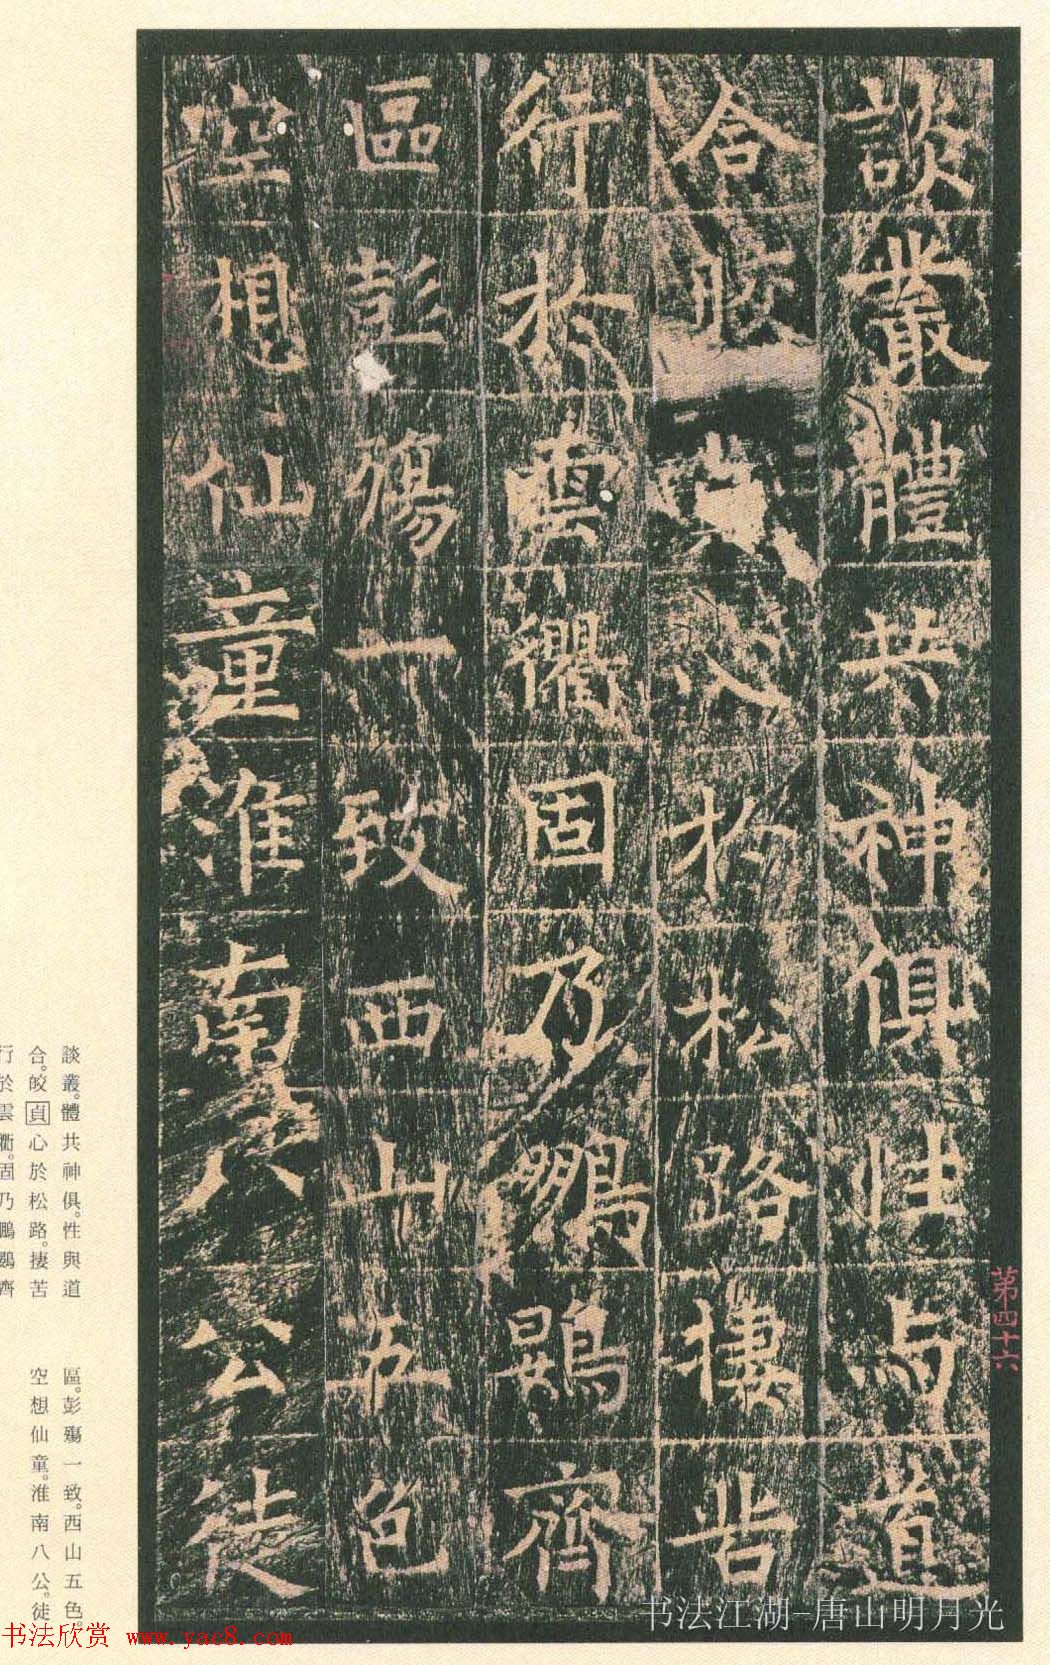 談叢體共神俱性与道
合皎貞心於松路捿苦
行於雲衢固乃鵬鷃齊
區彭殤一致西山五色
空想仙童淮南八公徒
第四十六
談叢。體共神俱。性與道
合。皎貞心於松路。捿苦
行於雲衢。固乃鵬鷃齊
區。彭殤一致。西山五色。
空想仙童。淮南八公。徒
书法江湖-唐山明月光
书法欣赏 www.yac8.com